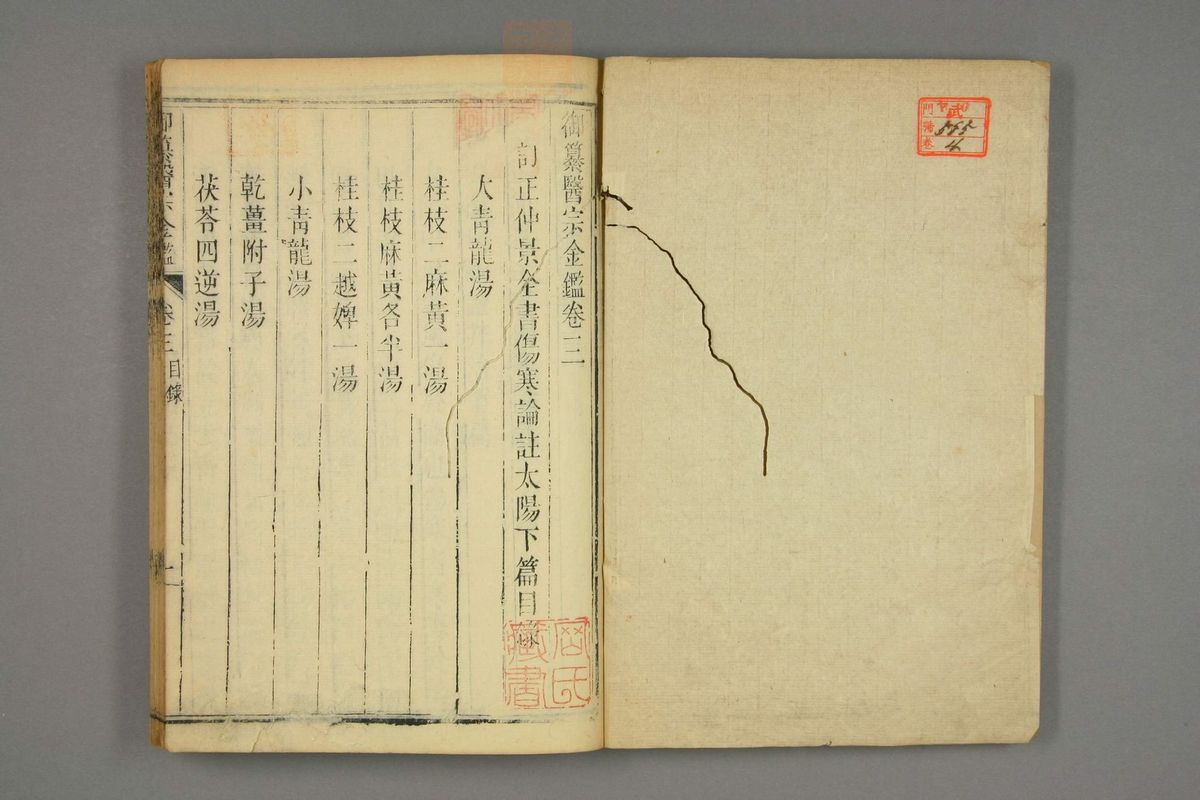 武
門
號 555
卷 4
御纂醫宗金鑑卷三
訂正仲景全書傷寒論註太陽下篇目錄
大青龍湯
桂枝二麻黃一湯
桂枝麻黃各半湯
桂枝二越婢一湯
小青龍湯
乾薑附子湯
茯苓四逆湯
御纂醫宗金鑑 卷三 目錄 一
周氏
藏書